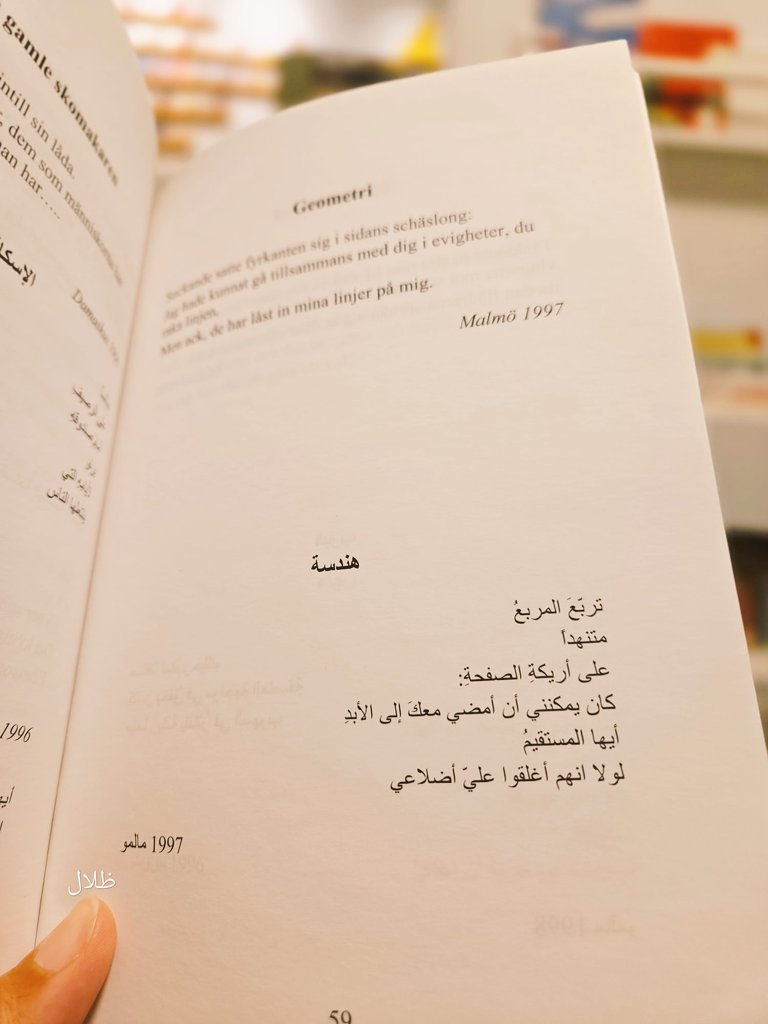 gamle skomakaren
intill sin låda.
dem som människorna har
man har.....
الإسكا
Damaskus
1996
Geometri
Suckande satte fyrkanten sig i sidans schäslong:
Jag hade kunnat gå tillsammans med dig i evigheter, du
raka linjen,
Men ack, de har låst in mina linjer på mig.
Malmö 1997
هندسة
تربّعَ المربعُ
متنهداً
على أريكةِ الصفحةِ:
كان يمكنني أن أمضي معكَ إلى الأبدِ
أيها المستقيمُ
لولا انهم أغلقوا عليّ أضلاعي
1997 مالمو
ظلال
59